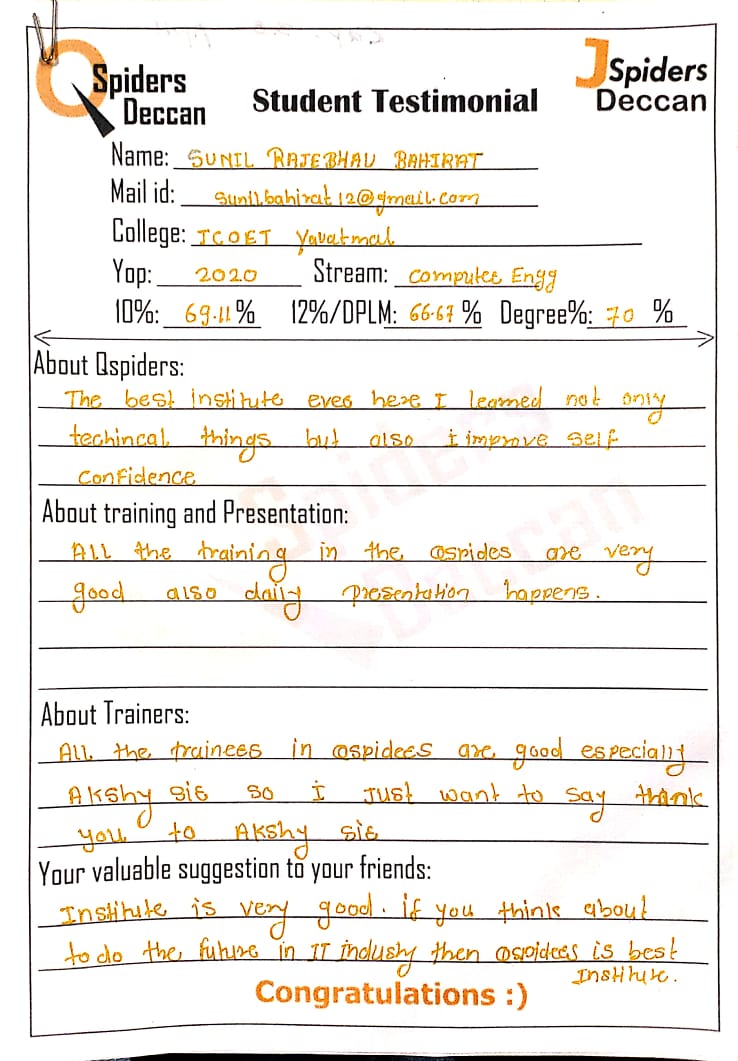 QSpiders
Deccan
Student Testimonial
JSpiders
Deccan
Name: SUNIL RAJEBHAU BAHIRAT
Mail id: sunilbahirat12@gmail.com
College: JCOET Yavatmal
Yop: 2020 Stream: Computer Engg
10%: 69.11% 12%/DPLM: 66.67% Degree%: 70 %
About Qspiders:
The best institute ever here I learned not only
techincal things but also i improve self
confidence
About training and Presentation:
All the training in the Qsrides are very
good also daily presentation happens.
About Trainers:
All the trainers in Qspiders are good especially
Akshy sir so i just want to say thank
you to Akshy sir
Your valuable suggestion to your friends:
Institute is very good. if you think about
to do the future in IT industry then Qspiders is best
Institute.
Congratulations :)
Spiders
Deccan